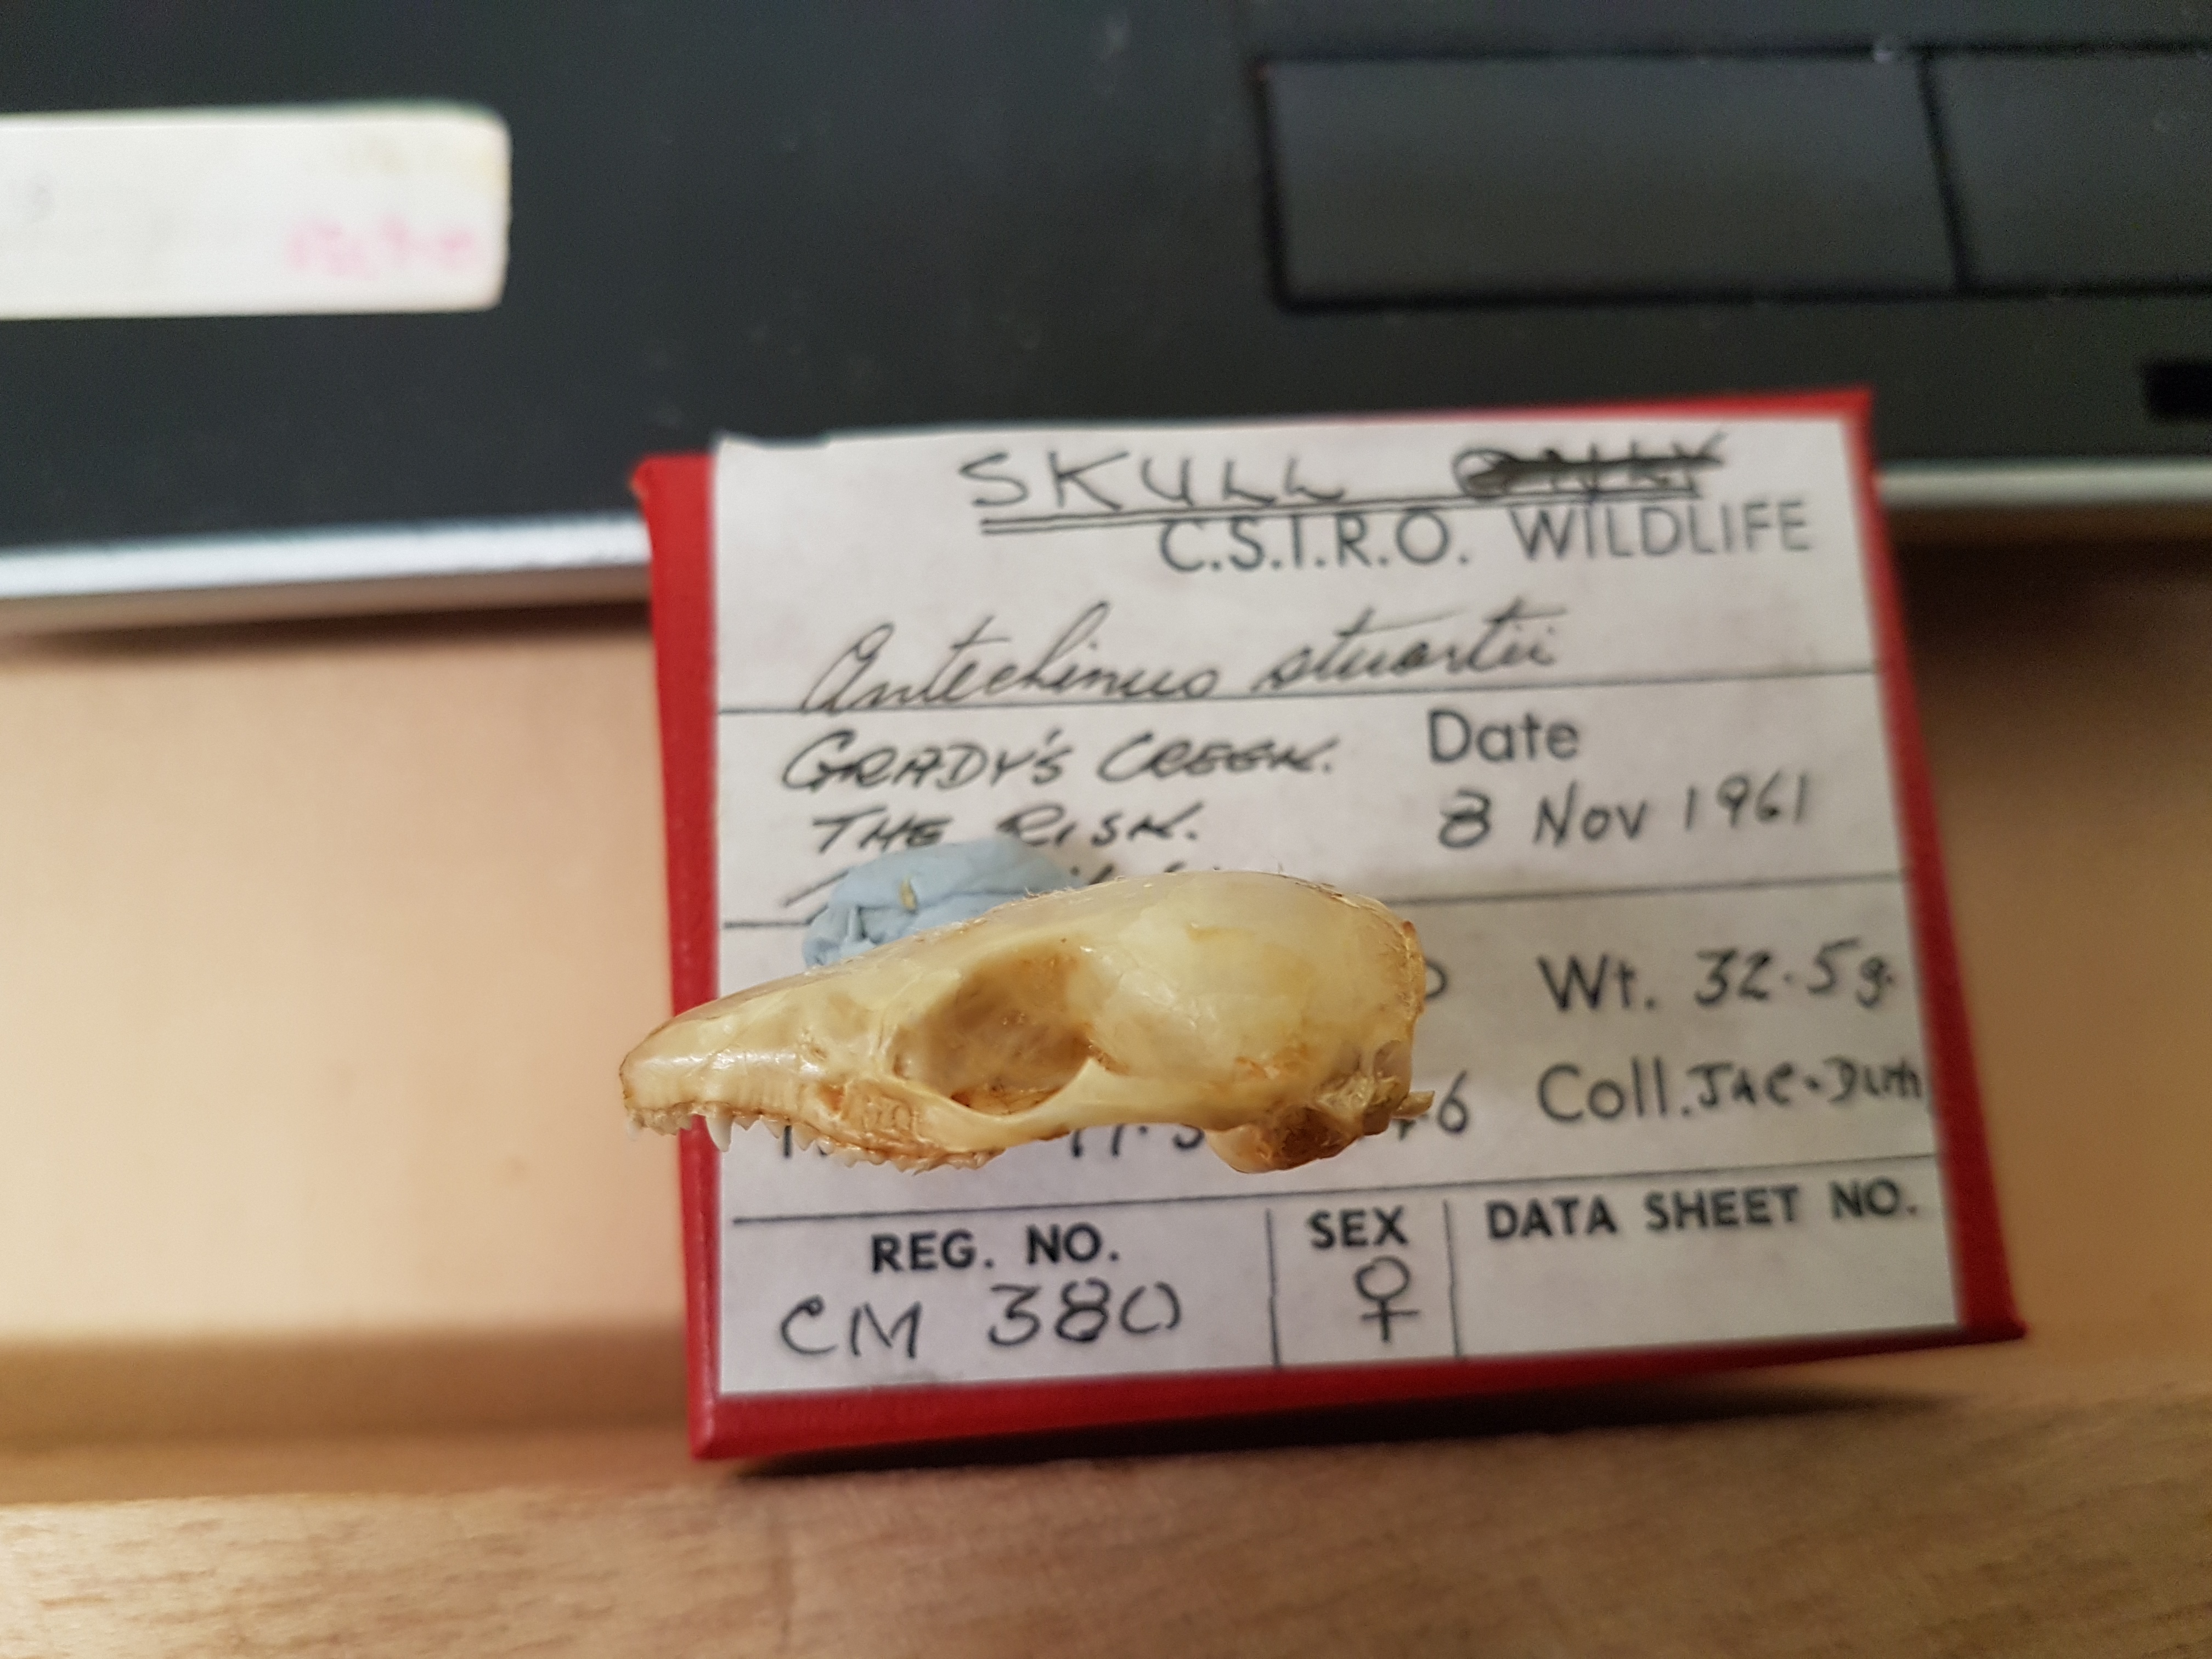 SKULL
C.S.I.R.O. WILDLIFE
Antechinus stuartii
GRADY'S CREEK.
THE RISK.
Date
8 Nov 1961
Wt. 32.5g.
6 Coll. JAC.
REG. NO.
CM 380
SEX
♀
DATA SHEET NO.